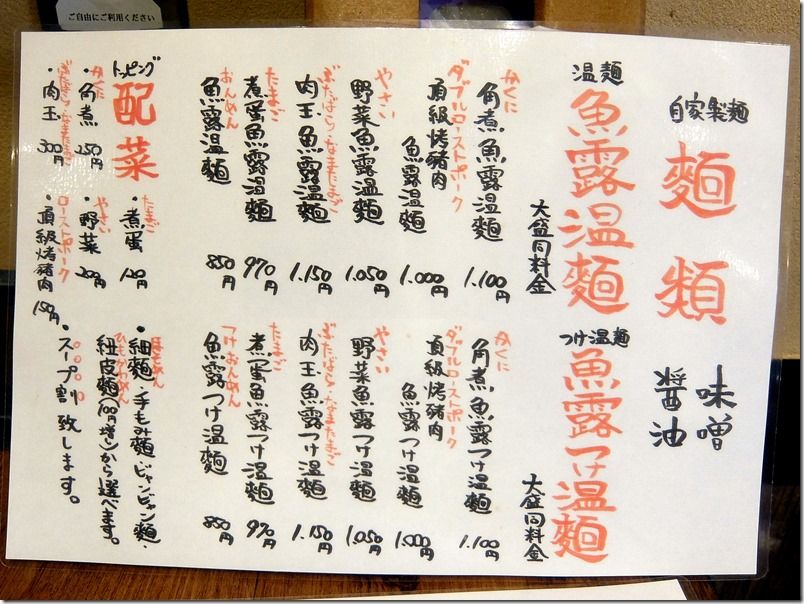 ご自由にご利用ください
自家製麺
麺類
味噌
醤油
温麺
魚露温麺
大盛同料金
かくに
角煮魚露温麺 1.100円
ダブルローストポーク
頂級烤豬肉
魚露温麺 1.000円
やさい
野菜魚露温麺 1.050円
ぶたばら・なまたまご
肉玉魚露温麺 1.150円
たまご
煮蛋魚露温麺 970円
おんめん
魚露温麺 850円
つけ温麺
魚露つけ温麺
大盛同料金
かくに
角煮魚露つけ温麺 1.100円
ダブルローストポーク
頂級烤豬肉
魚露つけ温麺 1.000円
やさい
野菜魚露つけ温麺 1.050円
ぶたばら・なまたまご
肉玉魚露つけ温麺 1.150円
たまご
煮蛋魚露つけ温麺 970円
つけおんめん
魚露つけ温麺 850円
トッピング
配菜
かくに
・角煮 250円
ぶたばら・なまたまご
・肉玉 300円
たまご
・煮蛋 120円
やさい
・野菜 200円
ローストポーク
・頂級烤豬肉 150円
ほそめん
・細麺・手もみ麺・ビャンビャン麺・
ひもかわめん
紐皮麺(100円増し)から選べます。
・スープ割り致します。